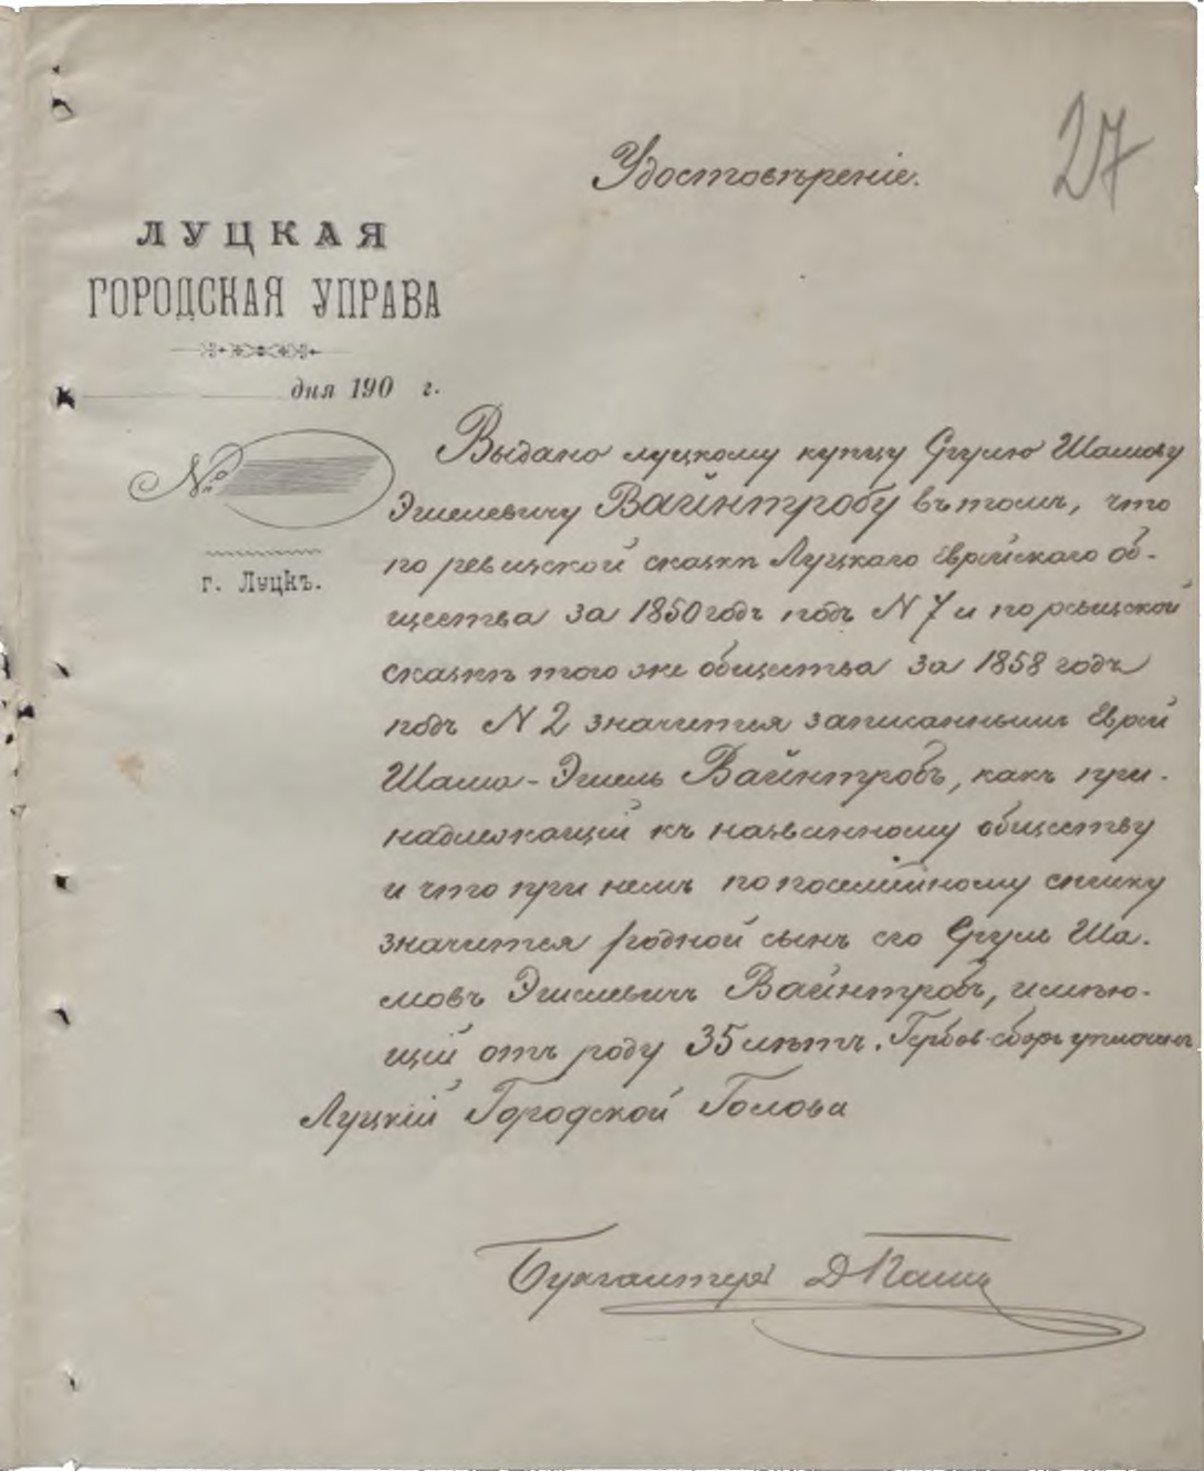 27
Удостовѣреніе.
ЛУЦКАЯ
ГОРОДСКАЯ УПРАВА
дня 190 г.
№
г. Луцкъ.
Выдано луцкому купцу Срулю Шамову
Эшелевичу Вайнтробу въ томъ, что
по ревизской сказкѣ Луцкаго Еврейскаго об-
щества за 1850 годъ подъ N 7 и по ревизской
сказкѣ того же общества за 1858 годъ
подъ N 2 значится записаннымъ Еврей
Шама-Эшель Вайнтробъ, какъ при-
надлежащій къ названному обществу
и что при немъ по посемѣйному списку
значится родной сынъ его Сруль Ша-
мовъ Эшелевичъ Вайнтробъ, имѣю-
щій отъ роду 35 лѣтъ. Гербов. сборъ уплоченъ
Луцкій Городской Голова
Бухгалтеръ Д